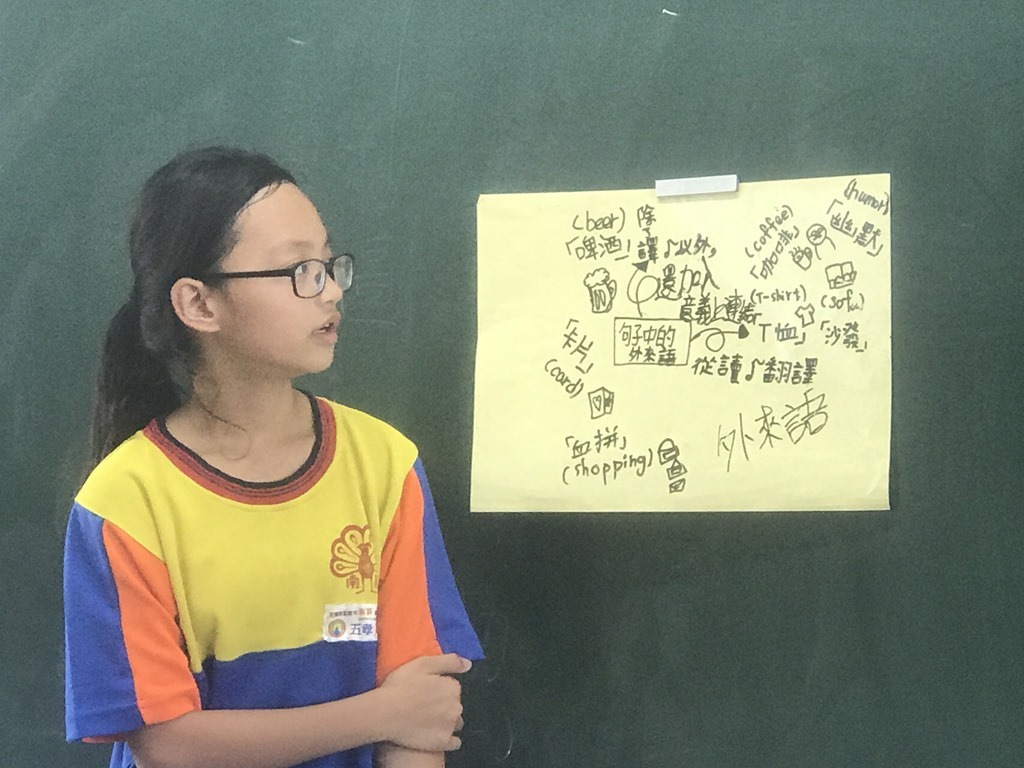 (beer)
「啤酒」
除了
譯音以外,
還加入
意義上連結
(coffee)
「咖啡」
(humor)
「幽默」
(sofa)
「沙發」
(T-shirt)
「T恤」
句子中的
外來語
從讀音翻譯
「卡片」
(card)
「血拼」
(shopping)
外來語
南
五孝